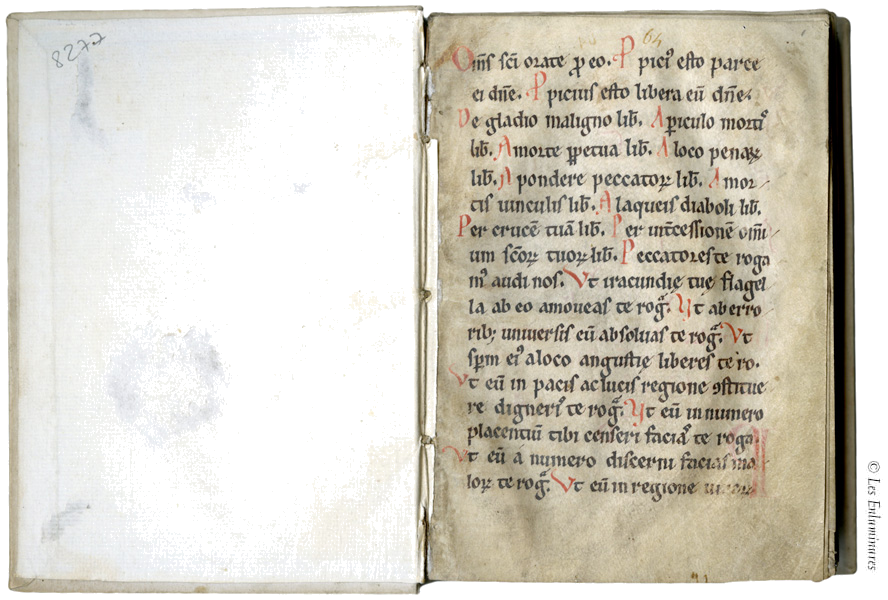 8277
64
Om̄s sc̄i orate ꝓ eo. Ppici᷒ esto parce
ei dn̄e. Ppicius esto libera eū dn̄e.
De gladio maligno lib̄. A ꝑiculo mortꝰ
lib̄. A morte ꝑpetua lib̄. A loco penaꝝ
lib̄. A pondere peccatoꝝ lib̄. A mor
tis uinculis lib̄. A laqueis diaboli lib̄.
Per crucē tuā lib̄. Per int̄cessionē om̄i
um sc̄oꝝ tuoꝝ lib̄. Peccatores te roga
mꝰ audi nos. Vt iracundię tue flagel
la ab eo amoueas te rog̃. Vt ab erro
ribꝫ uniuersis eū absoluas te rog̃. Vt
sp̄m eiꝰ a loco angustię liberes te ro.
Vt eū in pacis ac lucis regione ꝯstitue
re digneriꝰ te rog̃. Vt eū in numero
placentiū tibi censeri faciaꝰ te roga.
Vt eū a numero discerni facias ma
loꝝ te rog̃. Vt eū in regione
© Les Enluminures